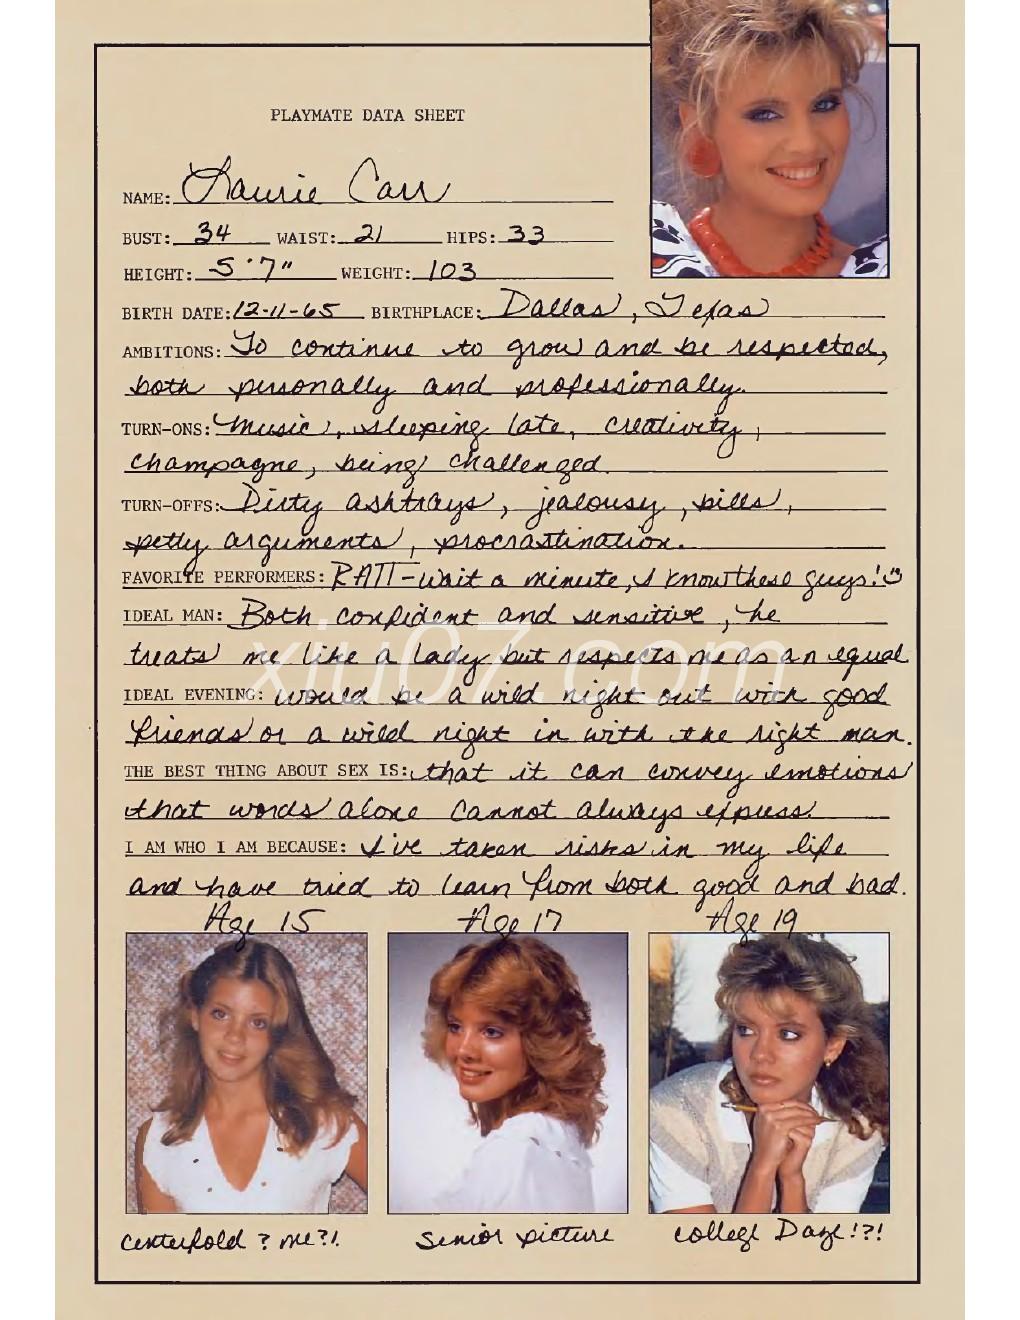 PLAYMATE DATA SHEET
NAME: Laurie Carr
BUST: 34 WAIST: 21 HIPS: 33
HEIGHT: 5'7" WEIGHT: 103
BIRTH DATE: 12-11-65 BIRTHPLACE: Dallas, Texas
AMBITIONS: To continue to grow and be respected,
both personally and professionally.
TURN-ONS: Music, sleeping late, creativity,
champagne, being challenged.
TURN-OFFS: Dirty ashtrays, jealousy, bills,
petty arguments, procrastination.
FAVORITE PERFORMERS: RATT-Wait a minute, I know these guys!
IDEAL MAN: Both confident and sensitive, he
treats me like a lady but respects me as an equal
xiu07.com
IDEAL EVENING: would be a wild night out with good
friends or a wild night in with the right man.
THE BEST THING ABOUT SEX IS: that it can convey emotions
that words alone cannot always express.
I AM WHO I AM BECAUSE: I've taken risks in my life
and have tried to learn from both good and bad.
Age 15 Age 17 Age 19
centerfold? me?!. Senior picture college Daze!?!